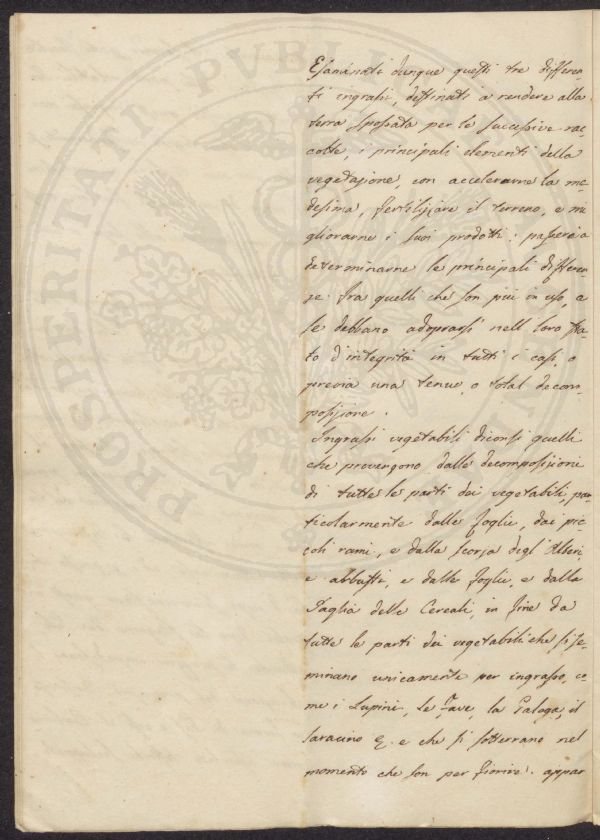 Esaminati dunque questi tre differen
ti ingrassi, destinati a rendere alla
terra spossata per le successive rac
colte, i principali elementi della
vegetazione, con accelerarne la me
desima, fertilizzare il terreno, e mi
gliorarne i suoi prodotti: passerò a
determinarne le principali differen
ze fra quelli che son più in uso, e
se debbano adoprarsi nell loro sta
to d'integrità in tutti i casi, o
previa una tenue, o total decom
posizione.
Ingrassi vegetabili diconsi quelli
che provengono dalle decomposizioni
di tutte le parti dei vegetabili, par
ticolarmente dalle foglie, dai pic
coli rami, e dalla scorza degl'Alberi,
e abbusti, e dalle foglie, e dalla
Paglia delle Cereali, in fine da
tutte le parti dei vegetabili che si se
minano unicamente per ingrasso, co
me i Lupini, Le Fave, la Galega, il
saracino &. e che si sotterrano nel
momento che son per fiorire. appar
PROSPERITATI PUBLI